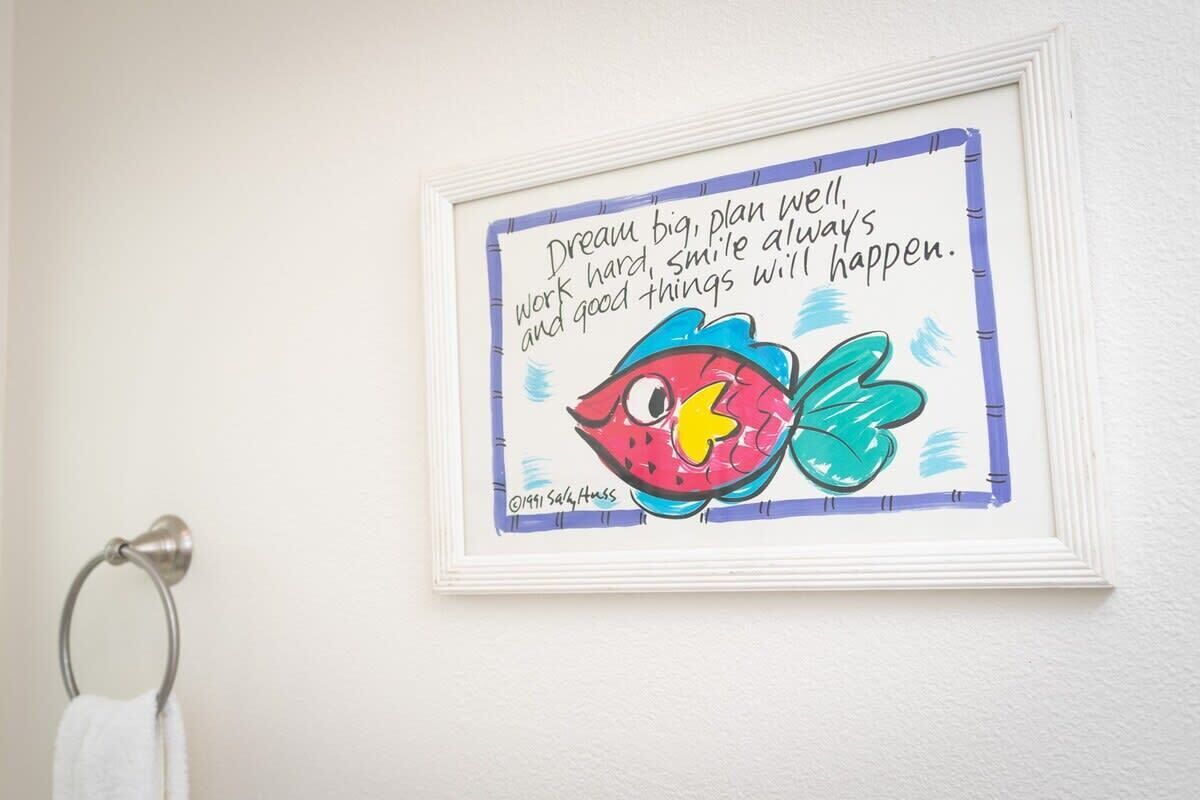 Dream big, plan well,
work hard, smile always
and good things will happen.
©1991 Sally Huss